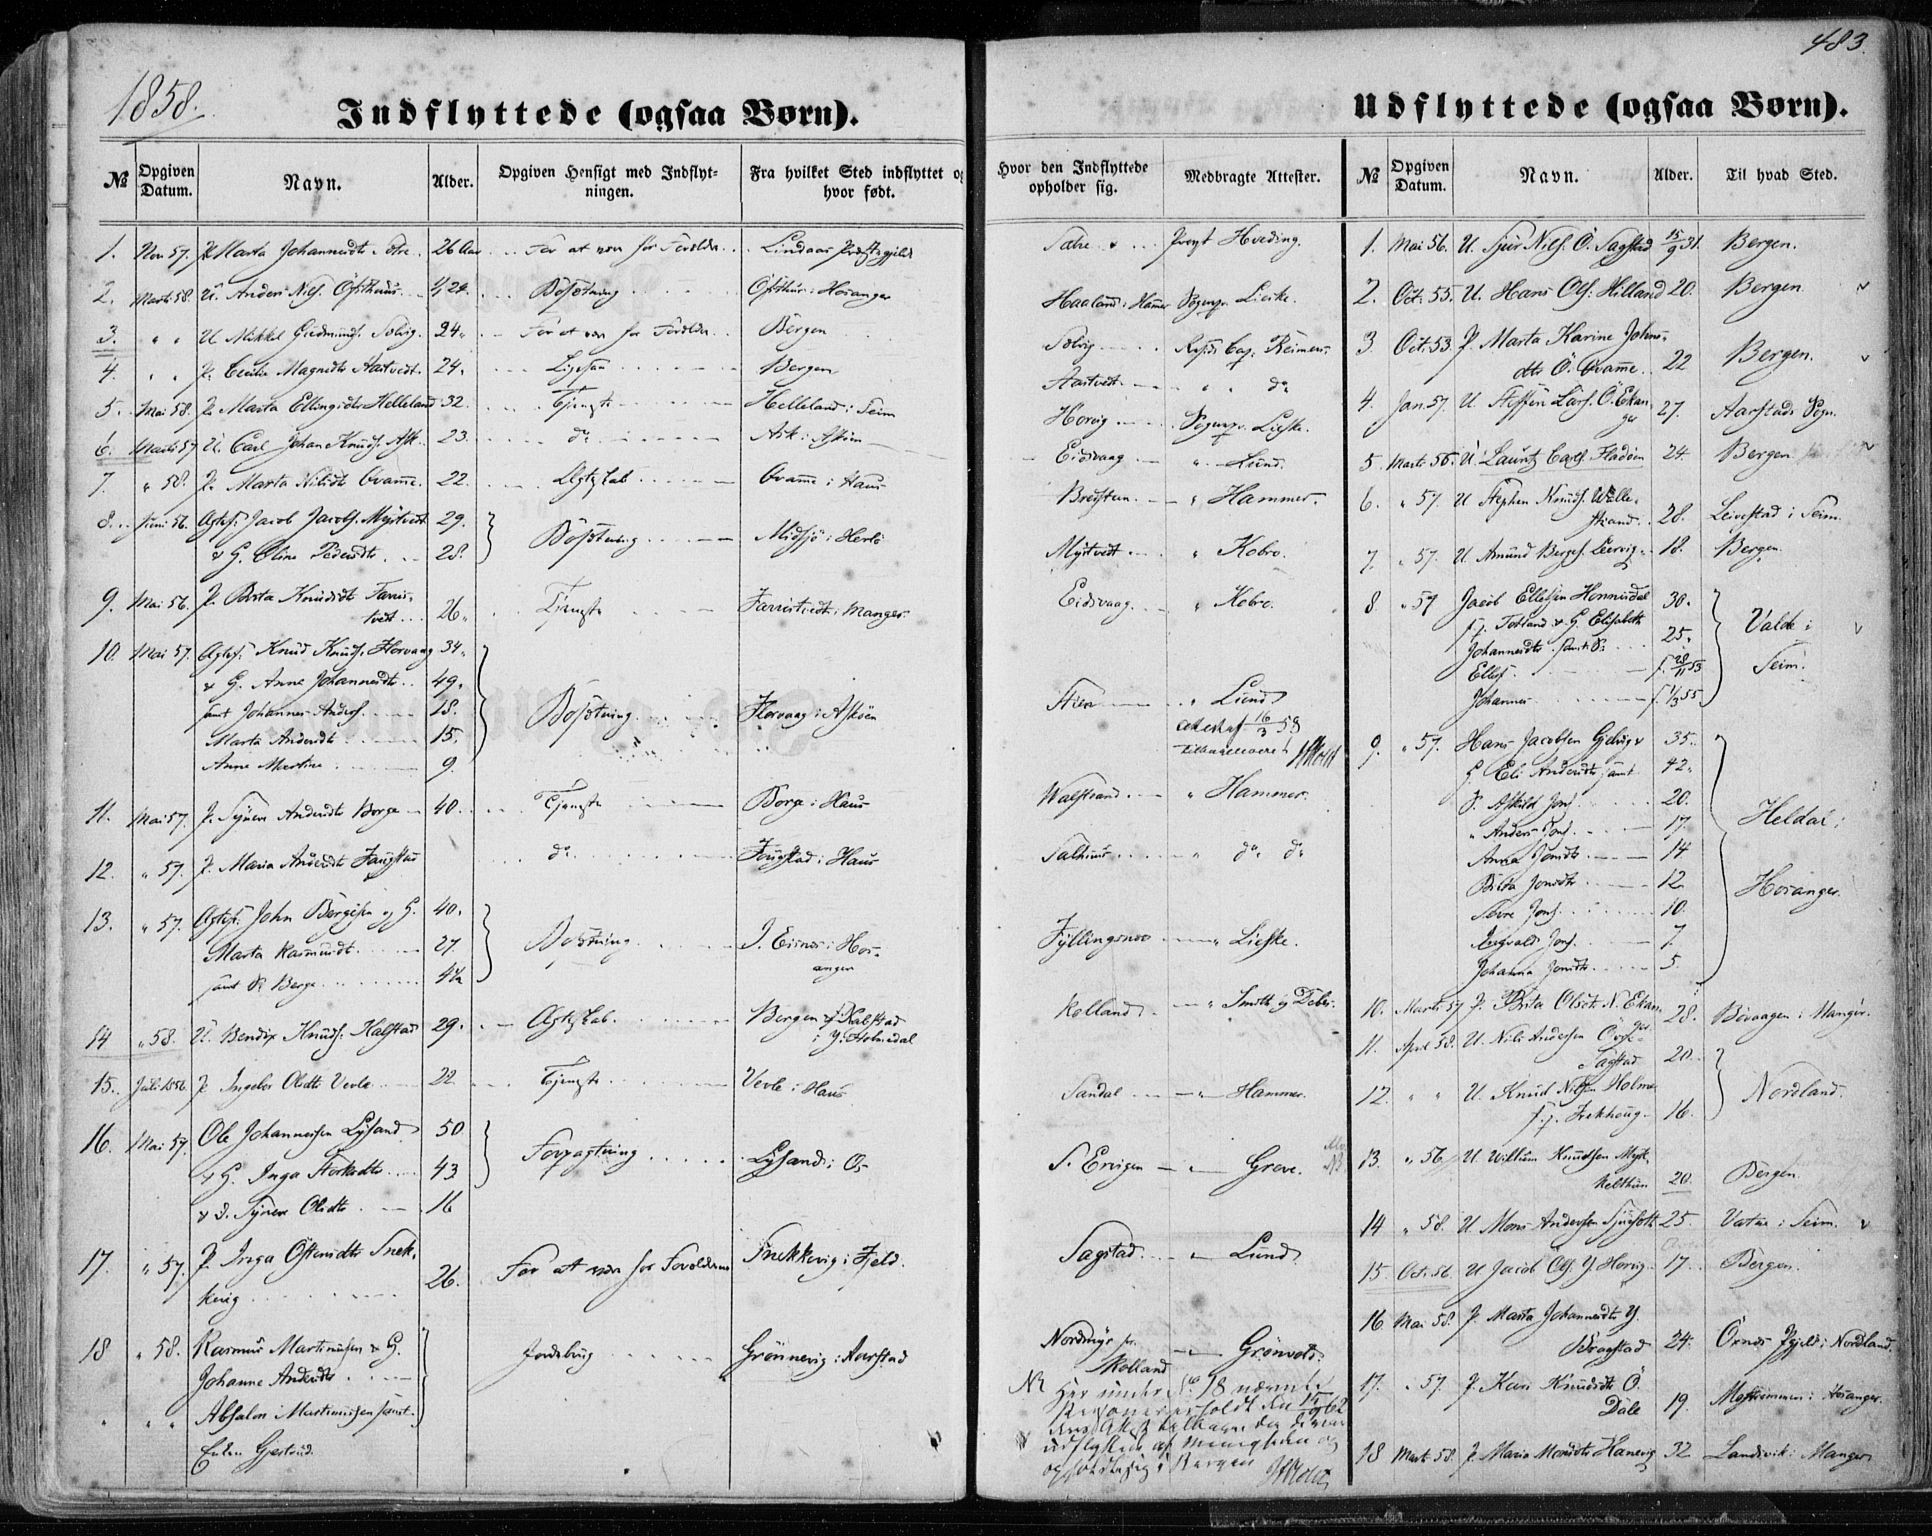 483.
1858.
Indflyttede (ogsaa Børn).
Udflyttede (ogsaa Børn).
№ Opgiven Datum. Navn. Alder. Opgiven Hensigt med Indflytningen. Fra hvilket Sted indflyttet og hvor født.
Hvor den Indflyttede opholder sig. Medbragte Attester. № Opgiven Datum. Navn. Alder. Til hvad Sted.
1. Nov. 57. P. Marta Johannesdtr 26 Aar For at være hos Forældre Lindaas Præstegjeld Provst Hveding.
2. Marts 58. U. Anders Nils. Østhuus Bosætning Østhus i Hosanger Haaland i Hammer Sogenpr. Lieske.
3. " " U. Mikkel Gudmunds. Solvig 24 " For at være hos Forældre Bergen Solvig Resid. Cap. Reimers.
4. " " P. Cecilie Magnedtr Aastvedt. 24 " Ligesaa Bergen Aastvedt " " do
5. Mai 58. P. Marta Ellingsdtr Helleland 32. Tjeneste Helleland i Seim Horvig Sogenpr. Lieske.
6. Marts 57 U. Carl Johan Knuds. Ask 23. do Ask i Askøen Eidsvaag " Lund.
7. " 58. P. Marta Nilsdtr Qvamme. 22. Ægteskab Qvamme i Haus Bredsteen. " Hammer.
8. Juni 56. Ægtef. Jacob Jacobs. Mjøtvedt 29.
& H. Oline Pedersdtr 28. Bosætning Midsjø i Herlø Mjøtvedt " Kobro.
9. Mai 56. P. Berta Knudsdtr Farris-
tvedt 26 " Tjeneste Farristvedt i Manger. Eidsvaag " Kobro.
10. Mai 57. Ægtef. Knud Knuds. Florvaag 34 "
& H. Anne Johannesdtr 49 "
samt Johannes Anders. 18. Bosætning Florvaag i Askøen " Lund
Marta Andersdtr 15. Attest af 16/3 58
Anne Martine 9.
11. Mai 57. P. Synneve Andersdtr Borge 40. Tjeneste Borge i Haus Walstrand " Hammer.
12. " 57. P. Maria Andersdtr Faugstad do Faugstad i Haus Salhuus " do do
13. " 57. Ægtef. John Bergesen og H. 40.
Marta Rasmusdtr. 27 Bosætning J. Eisnes i Hos-
anger Fyllingsnes " Lieske.
samt S. Berge 4½
14 " 58. U. Bendix Knuds. Kalstad 29. Ægteskab. Bergen f. Kalstad
i Y. Holmedal Rolland " Smith og Teber.
15. Juli 1856. P. Ingebor Olsdtr Vevle 22 Tjeneste Vevle i Haus Sandal " Hammer.
16. Mai 57. Ole Johannesen Lysand 50
& H. Inga Storksdtr 43 Forpagtning Lysand i Os S. Ervigen " Greve.
& D. Synneve Olsdtr 16
17. " 57. P. Inga Østensdtr Snek-
kevig 26. For at være hos Forældrene Snekkevig i Fjeld. Sagstad " Lund
18 " 58. Rasmus Martinusen & H.
Johanne Andersdtr Jordebrug Grønnevig i Aarstad Nordmyr pr. Molland " Grønvold.
" " " Absalon Martinusen samt
Enken Gjertrud
Her under No 18 nævnte
opholde sig i Bergen
1. Mai 56. U. Sjur Nils. Ø. Sagstad 15/9 31. Bergen.
2. Oct. 55. U. Hans Ols. Hilland 20. Bergen.
3 Oct. 53. P. Marta Karine Johns-
dtr Ø. Qvamme 22 Bergen.
4. Jan. 57. U. Steffen Lars. Ø. Ekan-
ger 27. Aarstads Sogn.
5. Marts 56. U. Lauritz Carls. Fladøen 24. Bergen
6. " 57. U. Stephen Knuds. Walle-
strand. 28. Leivestad i Seim.
7. " 57. U. Amund Berges. Leervig 18. Bergen.
8. " 57 Jacob Ellefsen Hennesdal 30.
f. j. Totland & H. Elisabeth
Johannesdtr samt S. 25. Valde i
Ellef f. 28/11 53 Seim.
Johannes f. 1/3 55
9. " 57. Hans Jacobsen Gjelvig & 35.
H. Eli Andersdtr samt 42.
S. Askild Jons. 20.
" Anders Jons. 17 Heldal i
Anna Jonsdtr 14
Brita Jonsdtr 12 Hosanger
Sivre Jons. 10.
Ingvald Jons. 7.
Johanna Jonsdtr 5.
10. Marts 57 P. Brita Olsdtr N. Ekan-
ger 28. Bøvaagen i Manger.
11. April 58. U. Nils Andersen Øvre-
Sagstad 20.
12. " " U. Knud Nilsen Holme
f. j. Frekhoug 16. Nordland.
13. " 56 U. Willum Knudsen Mjel-
kelthun 20. Bergen.
14 " 58. U. Mons Andersen 25. Vatne i Seim.
15. Oct. 56. U. Jacob Ols. Y. Horvig 17. Bergen.
16 Mai 58. P. Marta Johannesdtr Y.
Dragstad 24. Ørnes Pgjeld i Nordland.
17. " 57. P. Kari Knudsdtr Ø.
Dale 19. Mostrømmen i Hosanger.
18 Marts 58. P. Maria Monsdtr Hanevig 32 Landsvik i Manger